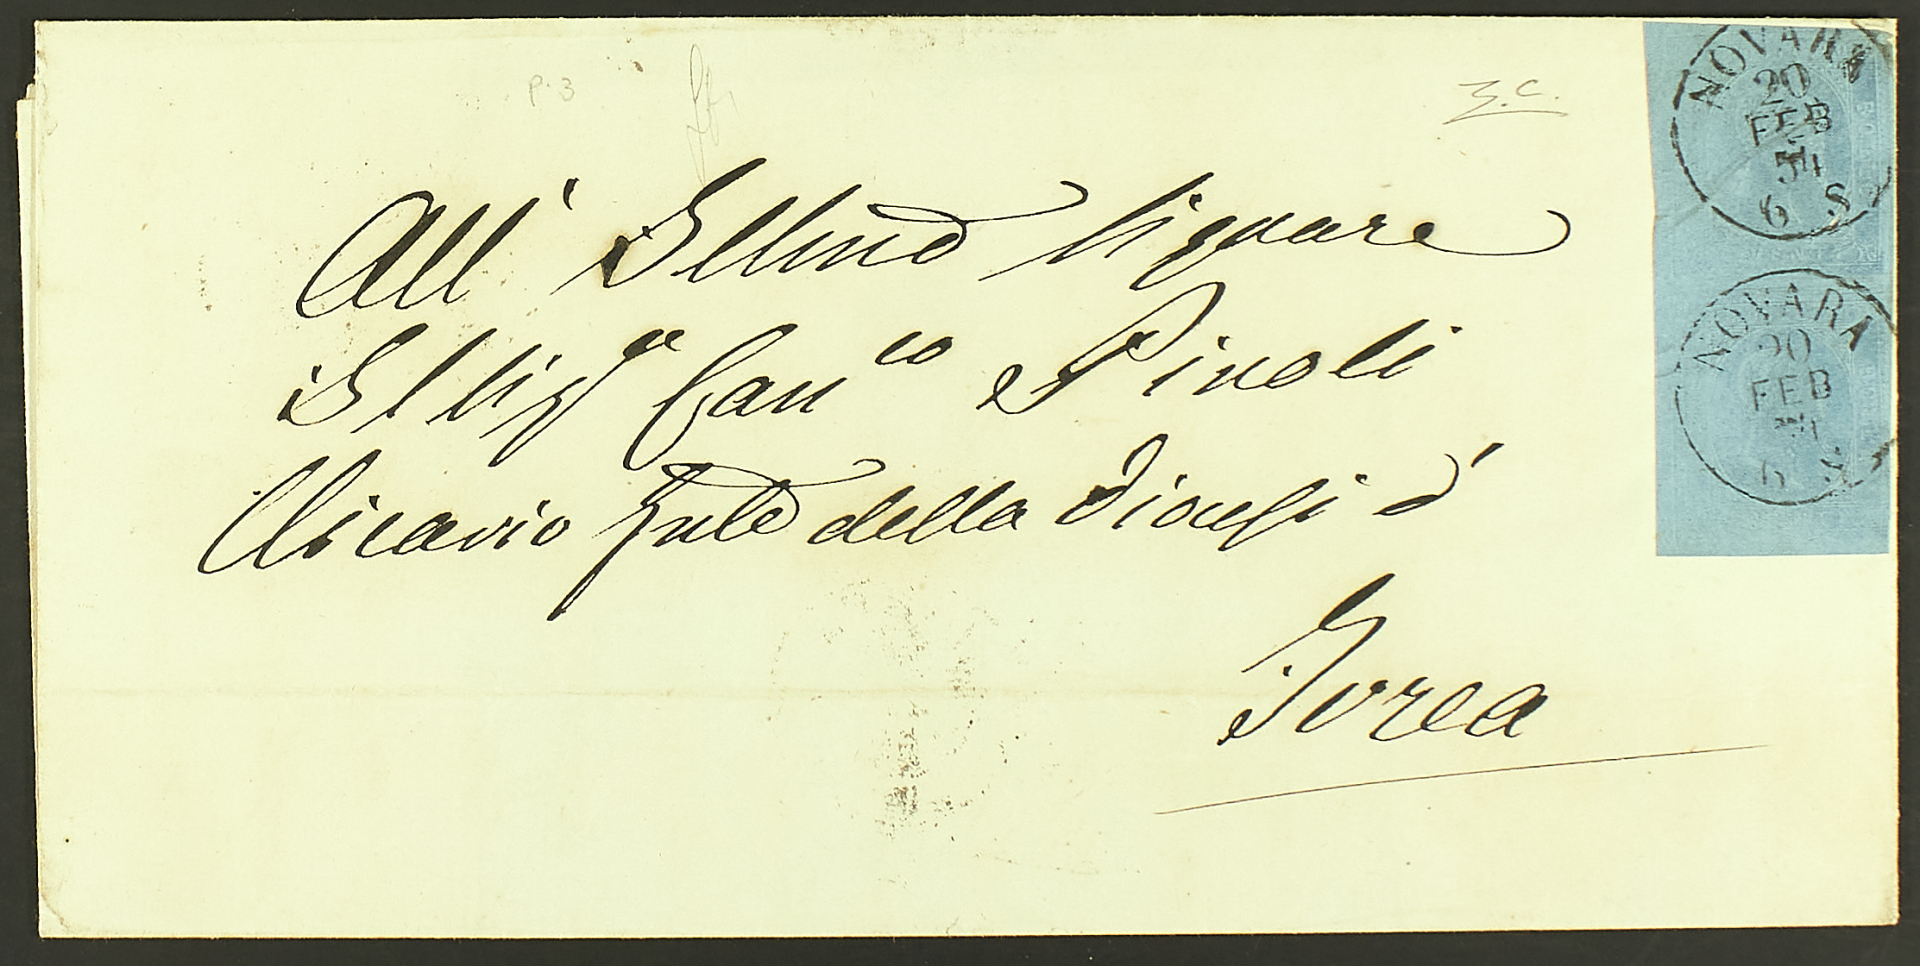 P. 3
3. C.
NOVARA
20
FEB
54
6 S
NOVARA
20
FEB
54
6 S
All' Illmo Signore
Il Sigr Canco Pinoli
Vicario Gnle della Diocesi d'
Ivrea